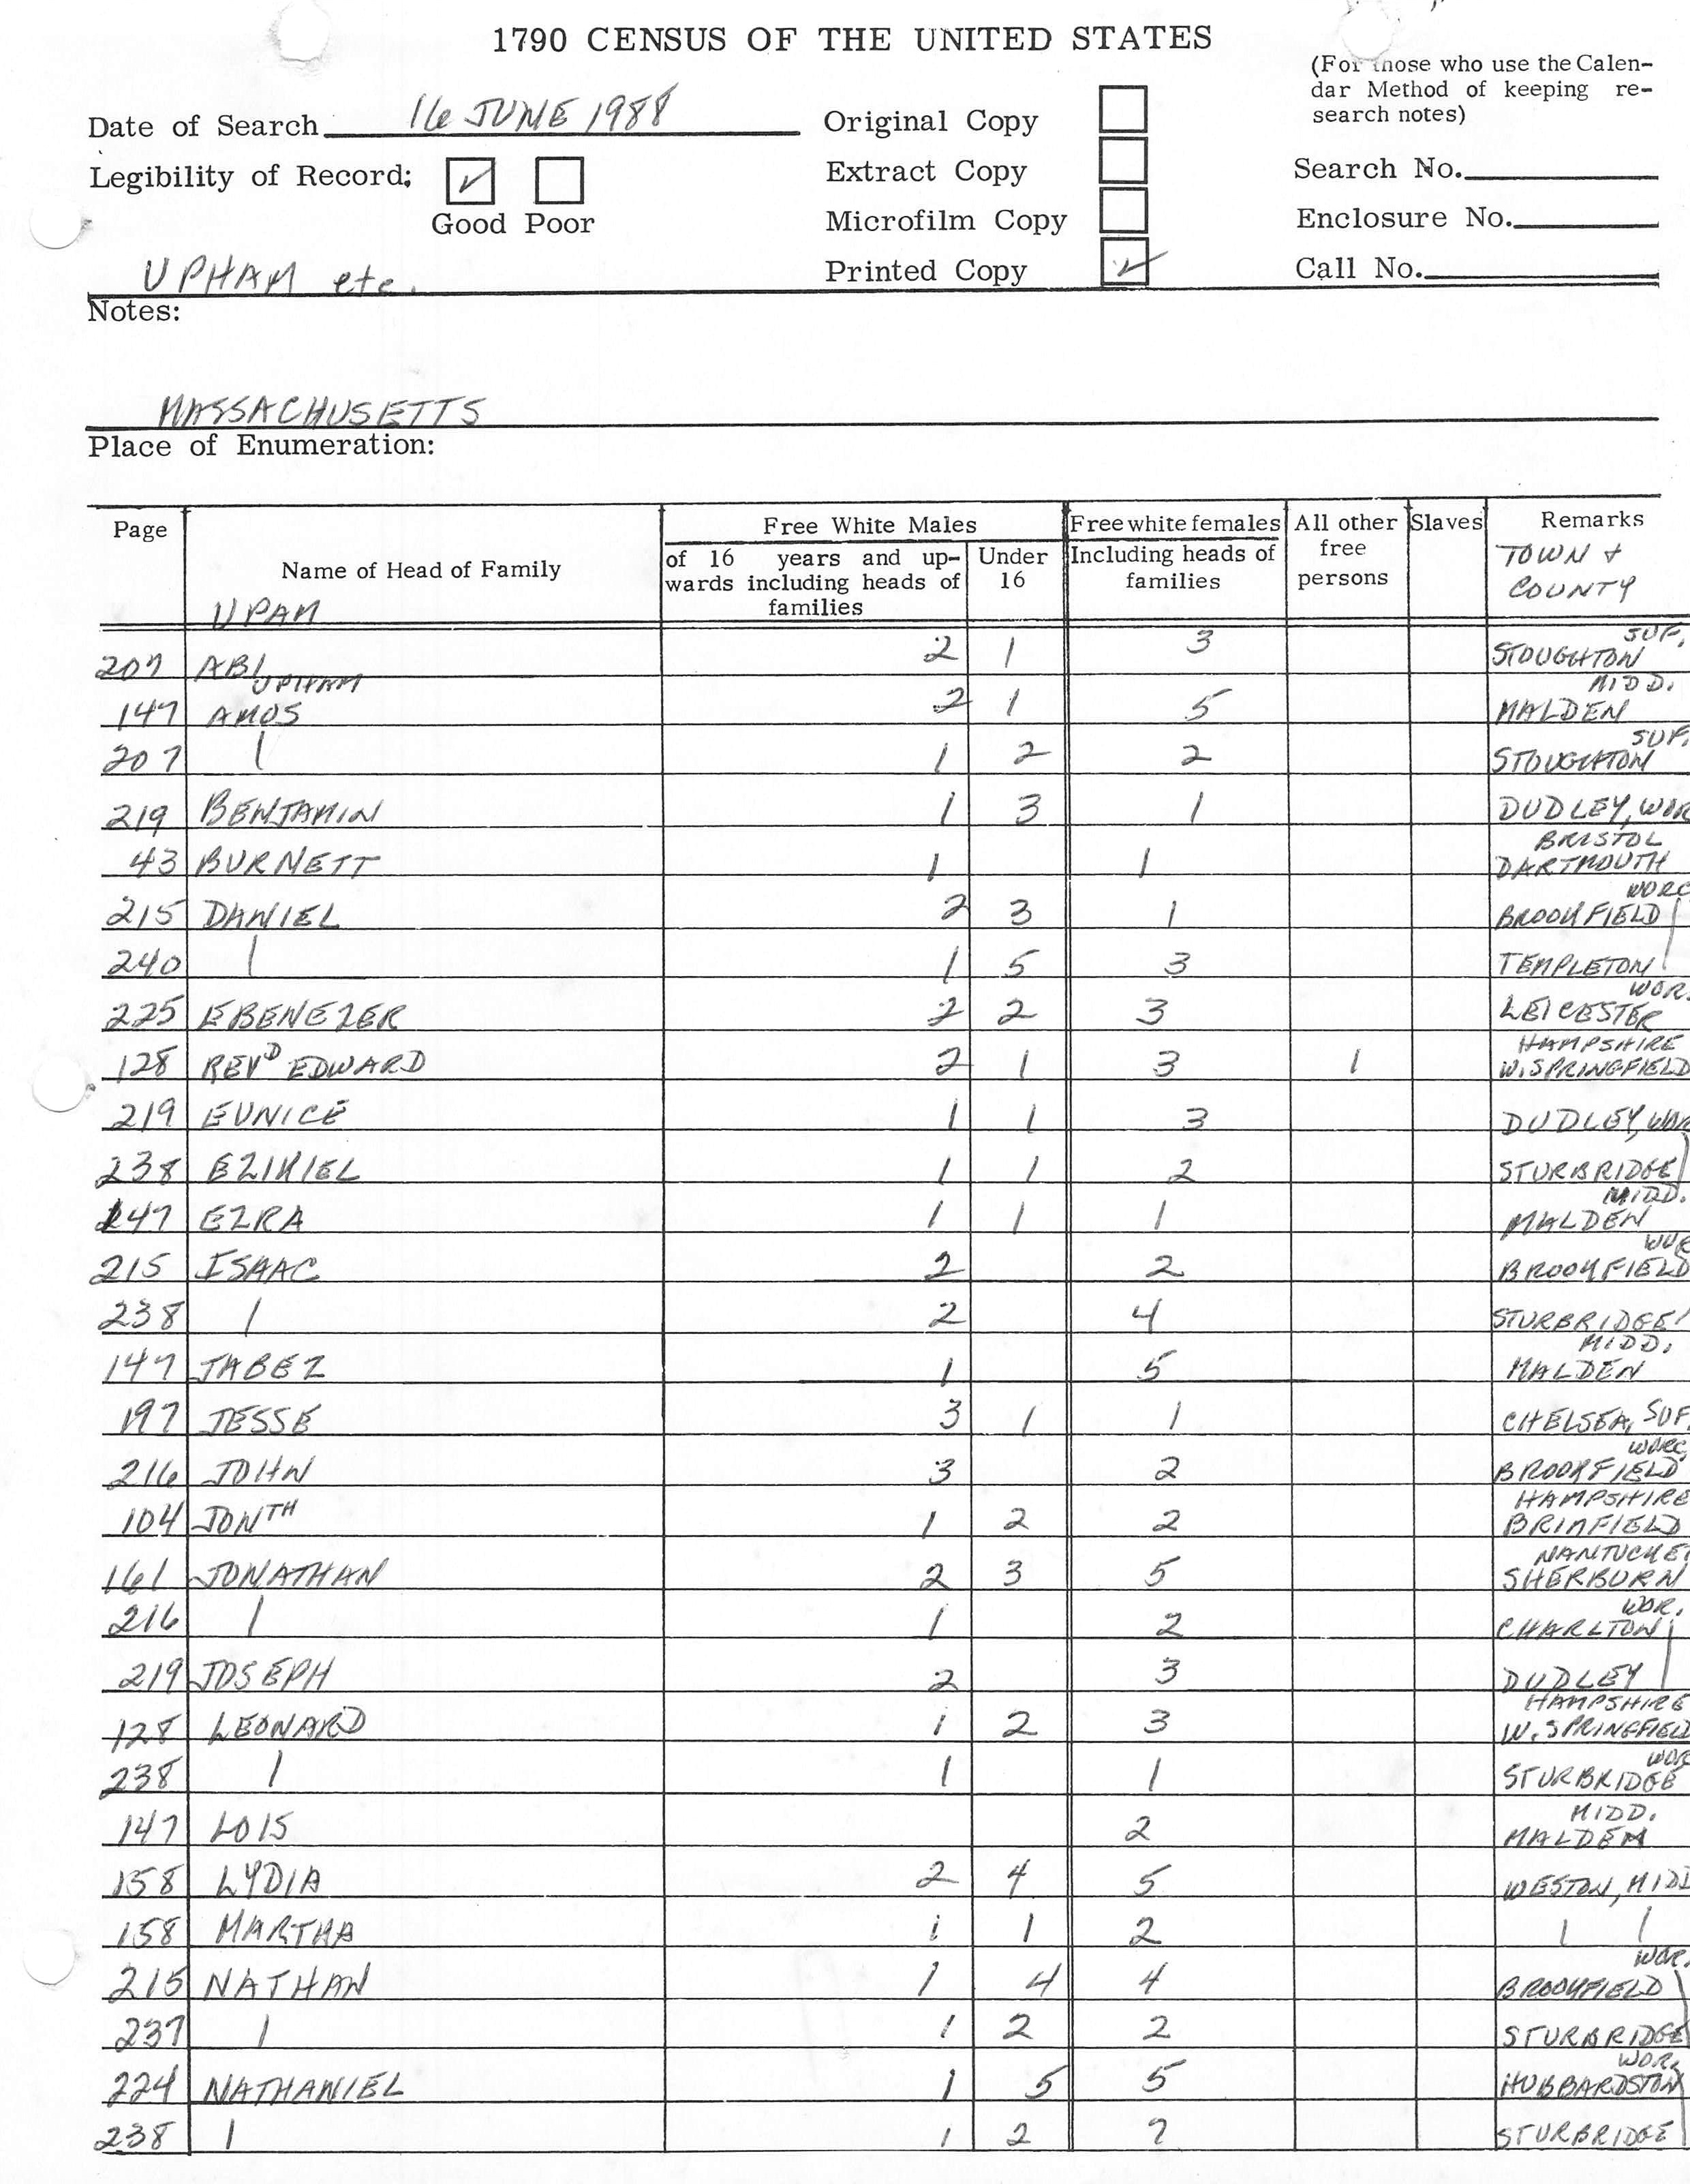 1790 CENSUS OF THE UNITED STATES
(For those who use the Calen-
dar Method of keeping re-
search notes)
Date of Search 16 JUNE 1988
Original Copy
Legibility of Record:
Extract Copy
Search No.
Good Poor
Microfilm Copy
Enclosure No.
UPHAM etc.
Printed Copy
Call No.
Notes:
MASSACHUSETTS
Place of Enumeration:
Page
Name of Head of Family
Free White Males
of 16 years and up-
wards including heads of
families
Under
16
Free white females
Including heads of
families
All other
free
persons
Slaves
Remarks
TOWN &
COUNTY
UPAM
207 ABI 2 1 3 STOUGHTON SUF.
UPHAM
147 AMOS 2 1 5 MALDEN MIDD.
207 | 1 2 2 STOUGHTON SUF.
219 BENJAMIN 1 3 1 DUDLEY, WOR
43 BURNETT 1 1 BRISTOL DARTMOUTH
215 DANIEL 2 3 1 BROOKFIELD WORC
240 | 1 5 3 TEMPLETON
225 EBENEZER 2 2 3 LEICESTER WOR.
128 REVD EDWARD 2 1 3 1 HAMPSHIRE W. SPRINGFIELD
219 EUNICE 1 1 3 DUDLEY, WOR
238 EZIKIEL 1 1 2 STURBRIDGE
147 EZRA 1 1 1 MALDEN MIDD.
215 ISAAC 2 2 BROOKFIELD WOR
238 | 2 4 STURBRIDGE
147 JABEZ 1 5 MALDEN MIDD.
197 JESSE 3 1 1 CHELSEA, SUF.
216 JOHN 3 2 BROOKFIELD WORC
104 JONTH 1 2 2 HAMPSHIRE BRIMFIELD
161 JONATHAN 2 3 5 NANTUCKET SHERBURN
216 | 1 2 CHARLTON WOR.
219 JOSEPH 2 3 DUDLEY
128 LEONARD 1 2 3 HAMPSHIRE W. SPRINGFIELD
238 | 1 1 STURBRIDGE WOR
147 LOIS 2 MALDEN MIDD.
158 LYDIA 2 4 5 WESTON, MIDD
158 MARTHA 1 1 2 | |
215 NATHAN 1 4 4 BROOKFIELD WOR.
237 | 1 2 2 STURBRIDGE
224 NATHANIEL 1 5 5 HUBBARDSTON WOR.
238 | 1 2 STURBRIDGE